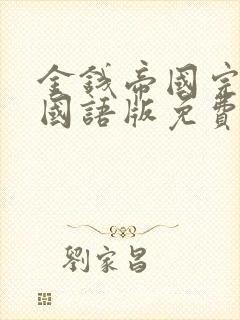 金錢帝國完
國語版免費
劉家昌